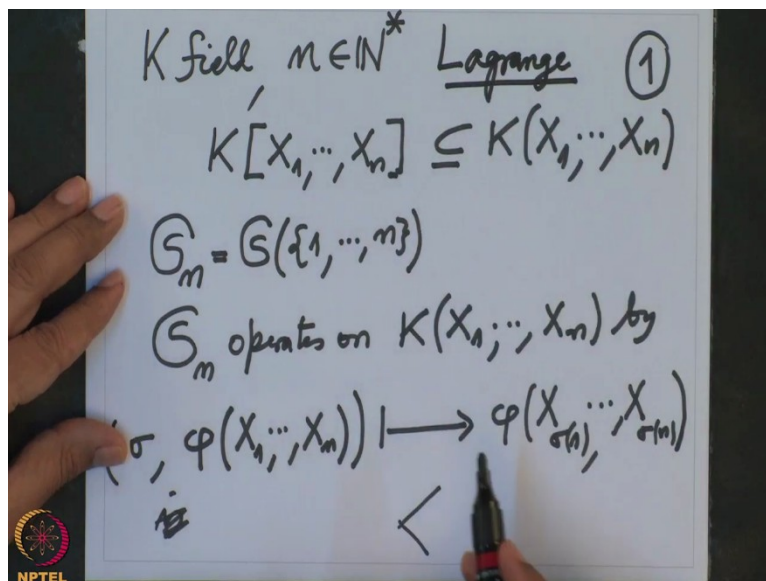 K field, n ∈ ℕ* Lagrange ①
K[X₁,…,Xₙ] ⊆ K(X₁,…,Xₙ)
𝔖ₙ = 𝔖({1,…,n})
𝔖ₙ operates on K(X₁,…,Xₙ) by
(σ, φ(X₁,…,Xₙ)) ↦ φ(X_σ(1),…,X_σ(n))
<
NPTEL